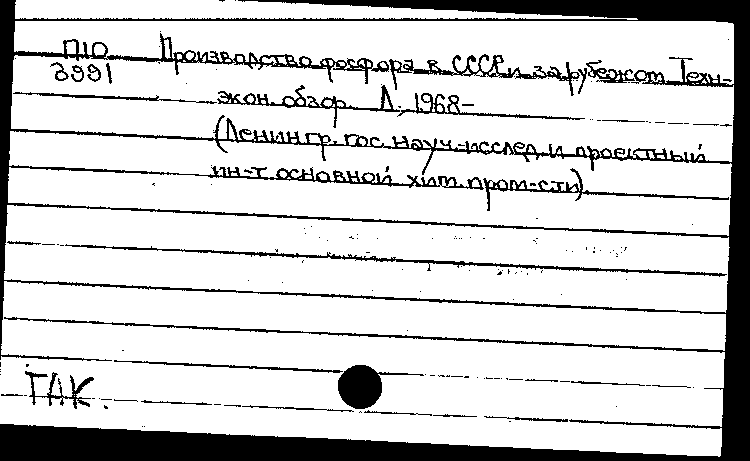 П10 Производство фосфора в СССР и за рубежом. Техн-
3991
экон. обзор. Л., 1968-
(Ленингр. гос. науч.-исслед. и проектный
ин-т основной хим. пром-сти).
ГАК.